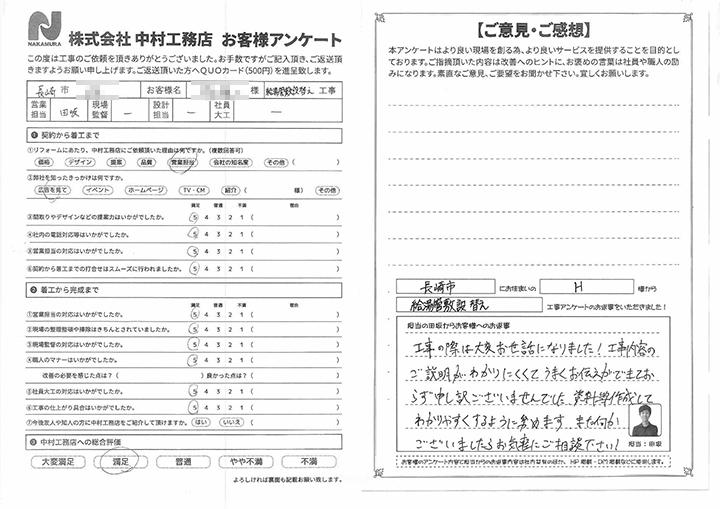 NAKAMURA
株式会社 中村工務店 お客様アンケート
この度は工事のご依頼を頂きありがとうございました。お手数ですがご記入頂き、ご返送頂
きますようお願い申し上げます。ご返送頂いた方へQUOカード(500円)を進呈致します。
長崎 市 お客様名 様 給湯管敷設替え 工事
営業担当 田坂 現場監督 ー 設計担当 ー 社員大工 ー
❶ 契約から着工まで
①リフォームにあたり、中村工務店にご依頼頂いた理由は何ですか。(複数回答可)
価格 デザイン 提案 品質 営業担当 会社の知名度 その他 ( )
②弊社を知ったきっかけは何ですか。
広告を見て イベント ホームページ TV・CM 紹介 ( 様) その他
満足 普通 不満 理由
③間取りやデザインなどの提案力はいかがでしたか。 5 4 3 2 1 ( )
④社内の電話対応等はいかがでしたか。 5 4 3 2 1 ( )
⑤営業担当の対応はいかがでしたか。 5 4 3 2 1 ( )
⑥契約から着工までの打合せはスムーズに行われましたか。 5 4 3 2 1 ( )
❷ 着工から完成まで
満足 普通 不満 理由
①営業担当の対応はいかがでしたか。 5 4 3 2 1 ( )
②現場の整理整頓や掃除はきちんとされていましたか。 5 4 3 2 1 ( )
③現場監督の対応はいかがでしたか。 5 4 3 2 1 ( )
④職人のマナーはいかがでしたか。 5 4 3 2 1 ( )
改善の必要を感じた点は?( )良かった点は?( )
⑤社員大工の対応はいかがでしたか。 5 4 3 2 1 ( )
⑥工事の仕上がり具合はいかがでしたか。 5 4 3 2 1 ( )
⑦今後友人や知人の方に中村工務店をご紹介して頂けますか。 はい いいえ ( )
❸ 中村工務店への総合評価
大変満足 満足 普通 やや不満 不満
よろしければ裏面も記載お願い致します。
【ご意見・ご感想】
本アンケートはより良い現場を創る為、より良いサービスを提供することを目的とし
ております。ご指摘頂いた内容は改善へのヒントに、お褒めの言葉は社員や職人の励
みになります。素直なご意見、ご要望をお聞かせ下さい。宜しくお願いします。
長崎市 にお住まいの H 様から
給湯管敷設替え 工事アンケートのお返事をいただきました!
担当の田坂からお客様へのお返事
工事の際は大変お世話になりました!工事内容の
ご説明がわかりにくくてうまくお伝えができてお
らず申し訳ございませんでした 資料等作成して
わかりやすくするように努めます また何か
ございましたらお気軽にご相談下さい!
担当:田坂
お客様のアンケート内容と担当からのお返事内容は社内共有のほか、HP掲載・DM掲載などに使用します。